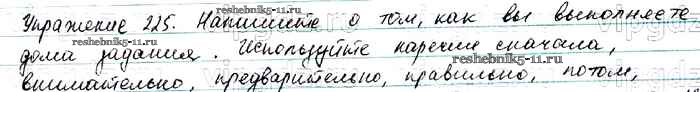 Упражнение 225. Напишите о том, как вы выполняете
reshebnik5-11.ru reshebnik5-11.ru
дома задания. Используйте наречия сначала,
внимательно, предварительно, правильно, потом,
reshebnik5-11.ru